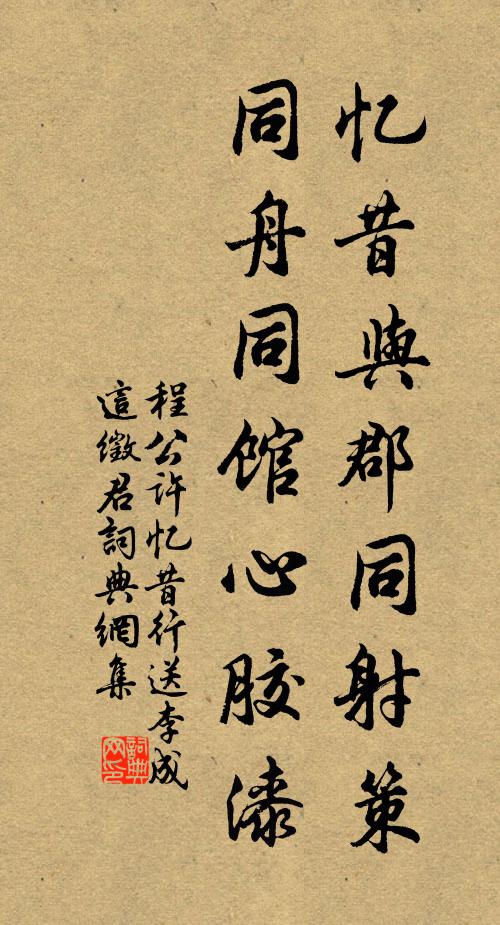 忆昔與郡同射策
同舟同馆心胶漆
程公许忆昔行送李成
這徵君詞典網集
詞典网印